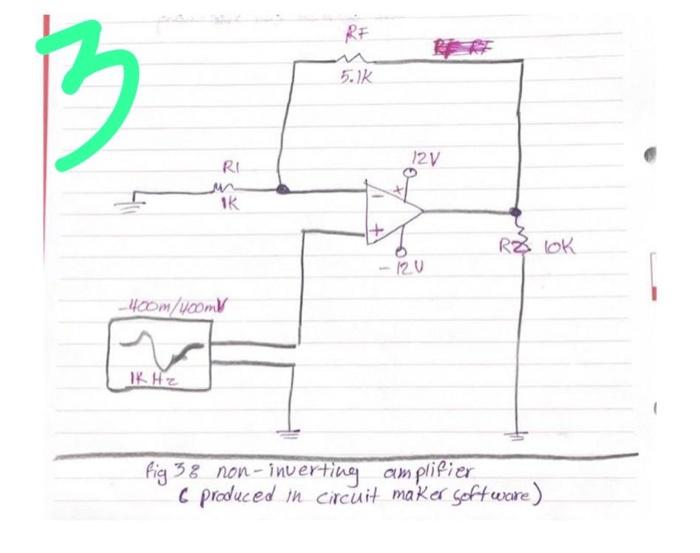 3
RF
5.1K
12V
R1
1K
-
+
+
-12V
R2 10K
-400m/400mV
1KHz
fig 3: non-inverting amplifier
( produced in circuit maker software)